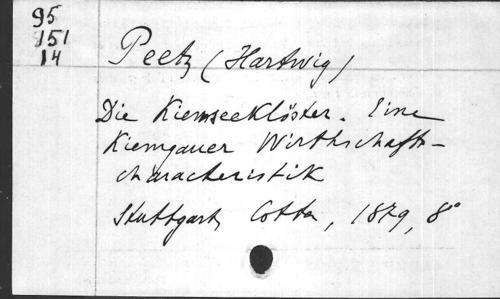 95
151
14
Peetz (Hartwig)
Die Kiemseeklöster. Eine
Kiemgauer Wirthschafts-
characteristik
Stuttgart, Cotta, 1879, 8°